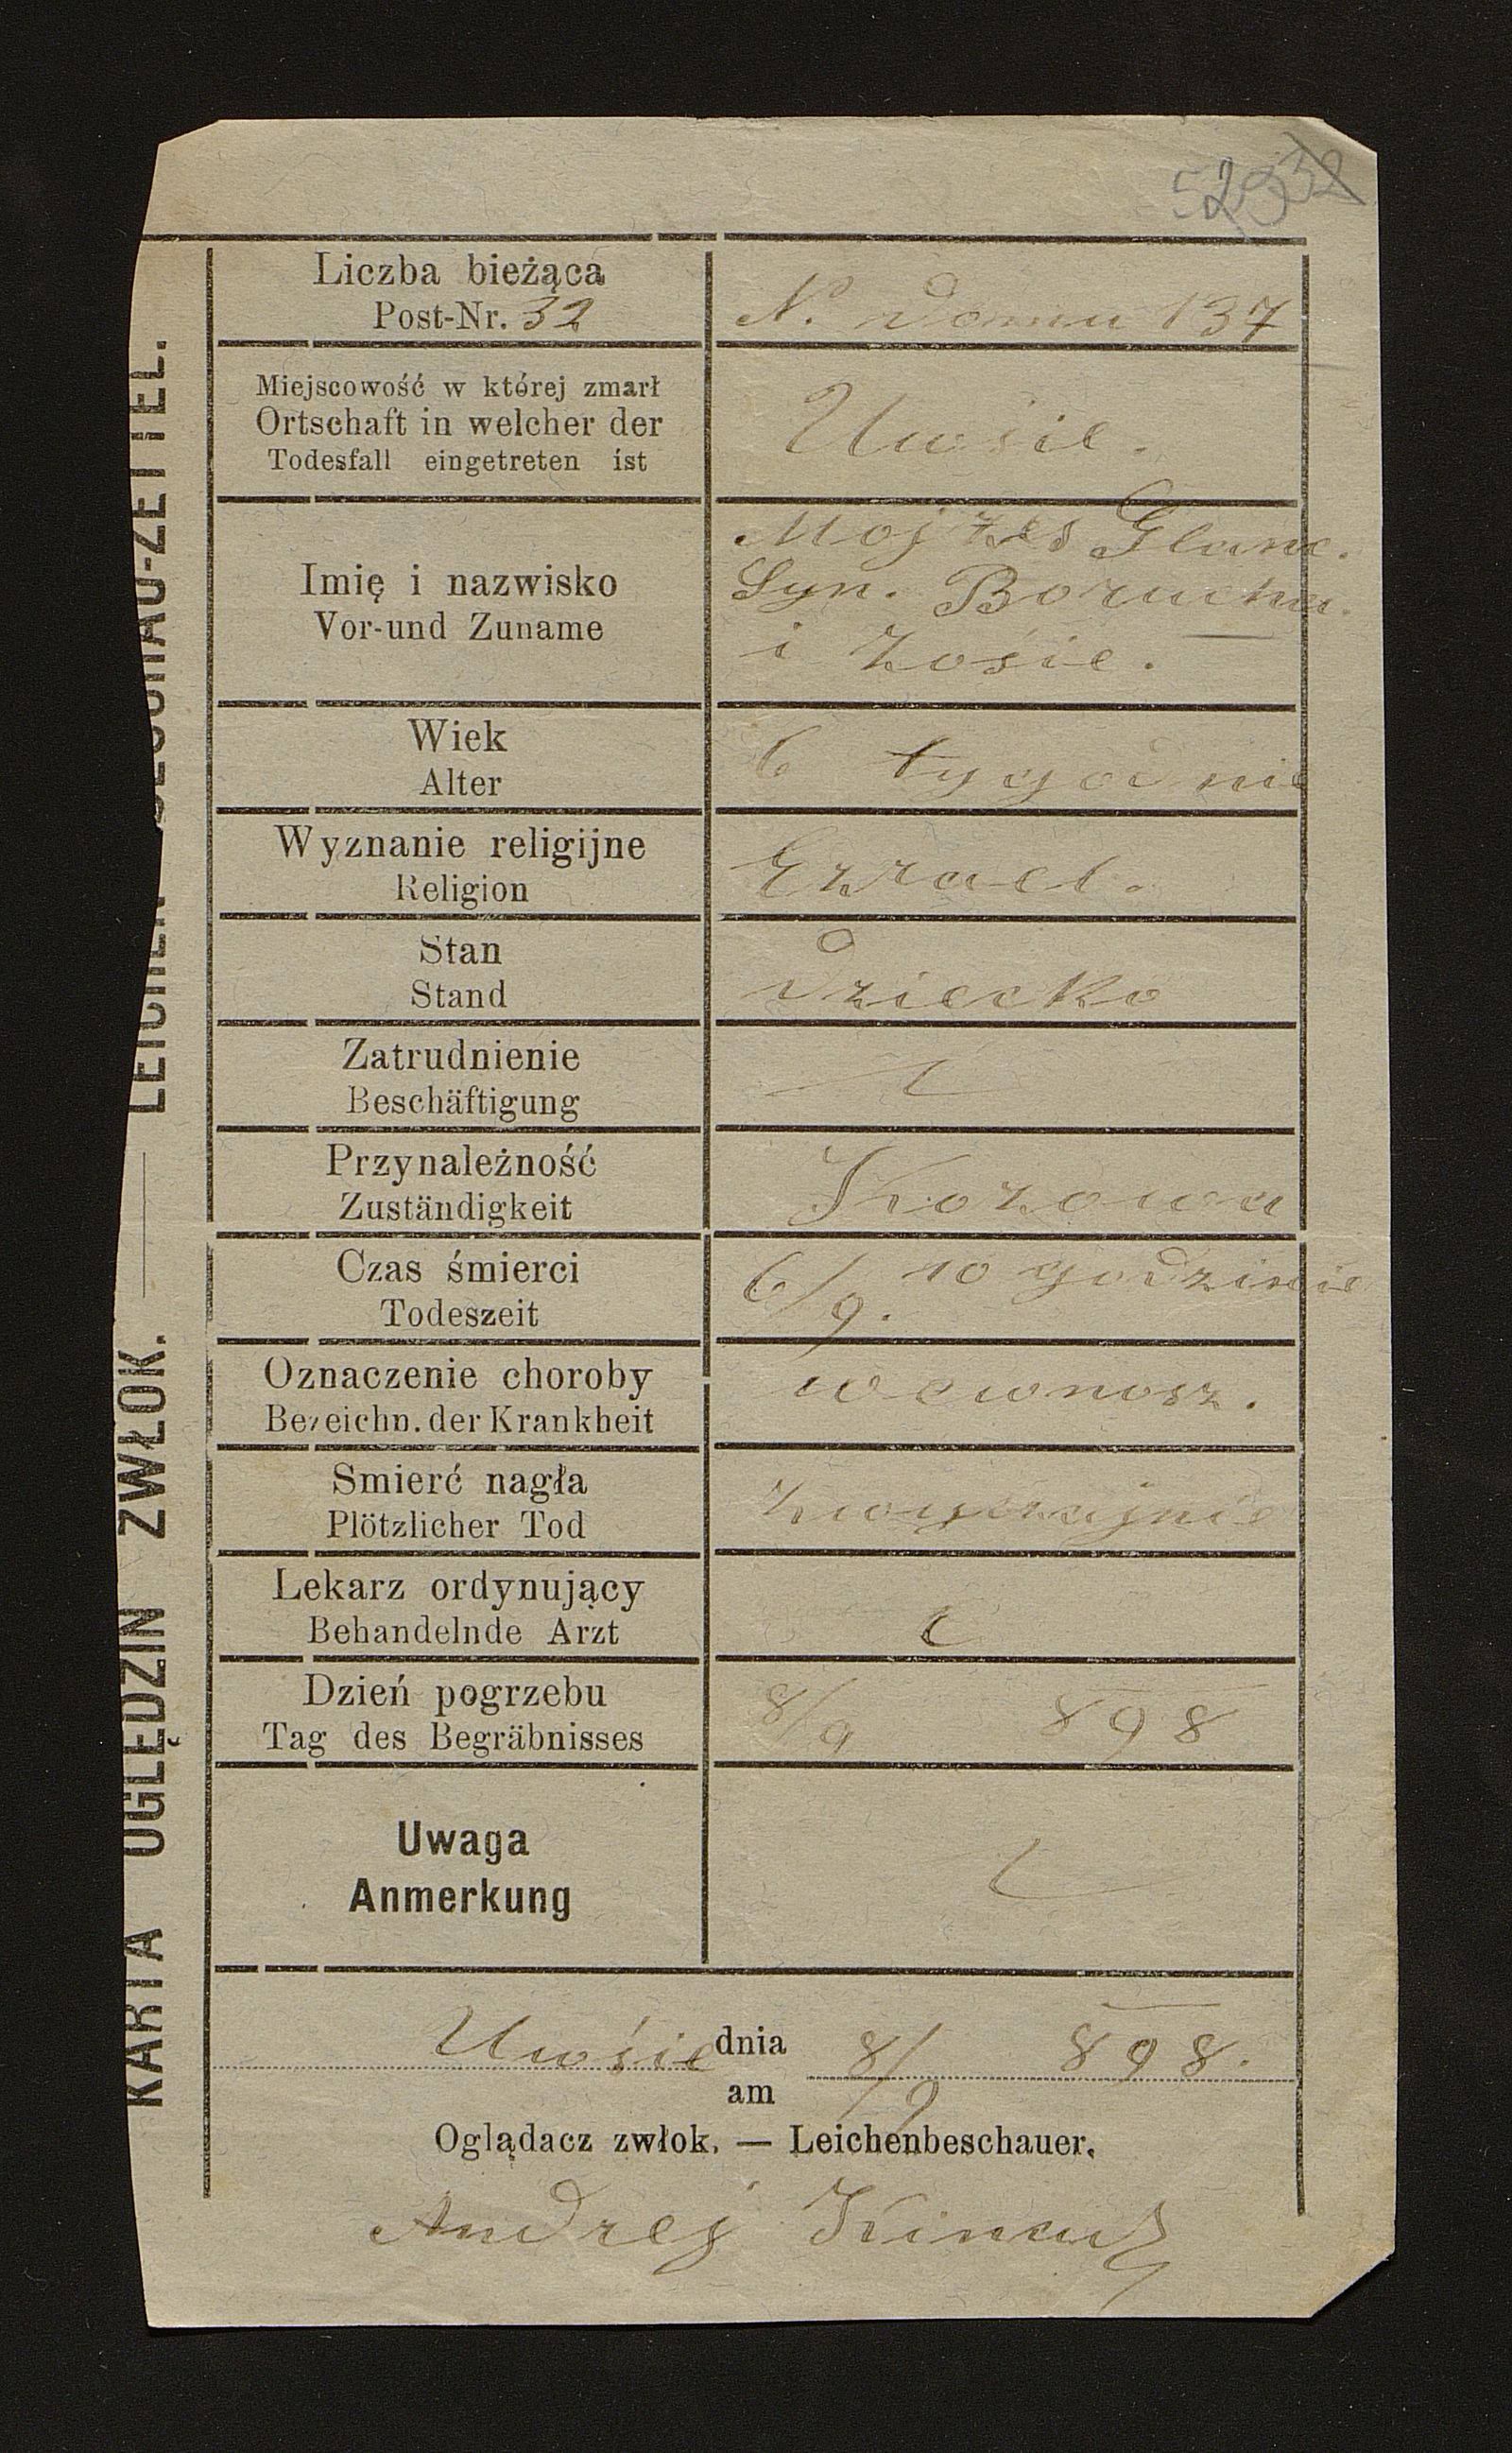 32
Liczba bieżąca
Post-Nr. 32
N. domu 137
Miejscowość w której zmarł
Ortschaft in welcher der
Todesfall eingetreten ist
Uwsie.
Imię i nazwisko
Vor-und Zuname
Mojżes Glanc.
Syn. Borucha.
i Zosie.
Wiek
Alter
6 tygodnie
Wyznanie religijne
Religion
Izrael.
Stan
Stand
dziecko
Zatrudnienie
Beschäftigung
Przynależność
Zuständigkeit
Kozowa
Czas śmierci
Todeszeit
6/9. 10 godzinie
Oznaczenie choroby
Bezeichn. der Krankheit
Smierć nagła
Plötzlicher Tod
zwyczajnie
Lekarz ordynujący
Behandelnde Arzt
Dzień pogrzebu
Tag des Begräbnisses
8/9 898
Uwaga
Anmerkung
Uwsie dnia 8/9 898.
am
Oglądacz zwłok. — Leichenbeschauer.
Andrej
KARTA OGLĘDZIN ZWŁOK. — LEICHEN-BESCHAU-ZETTEL.